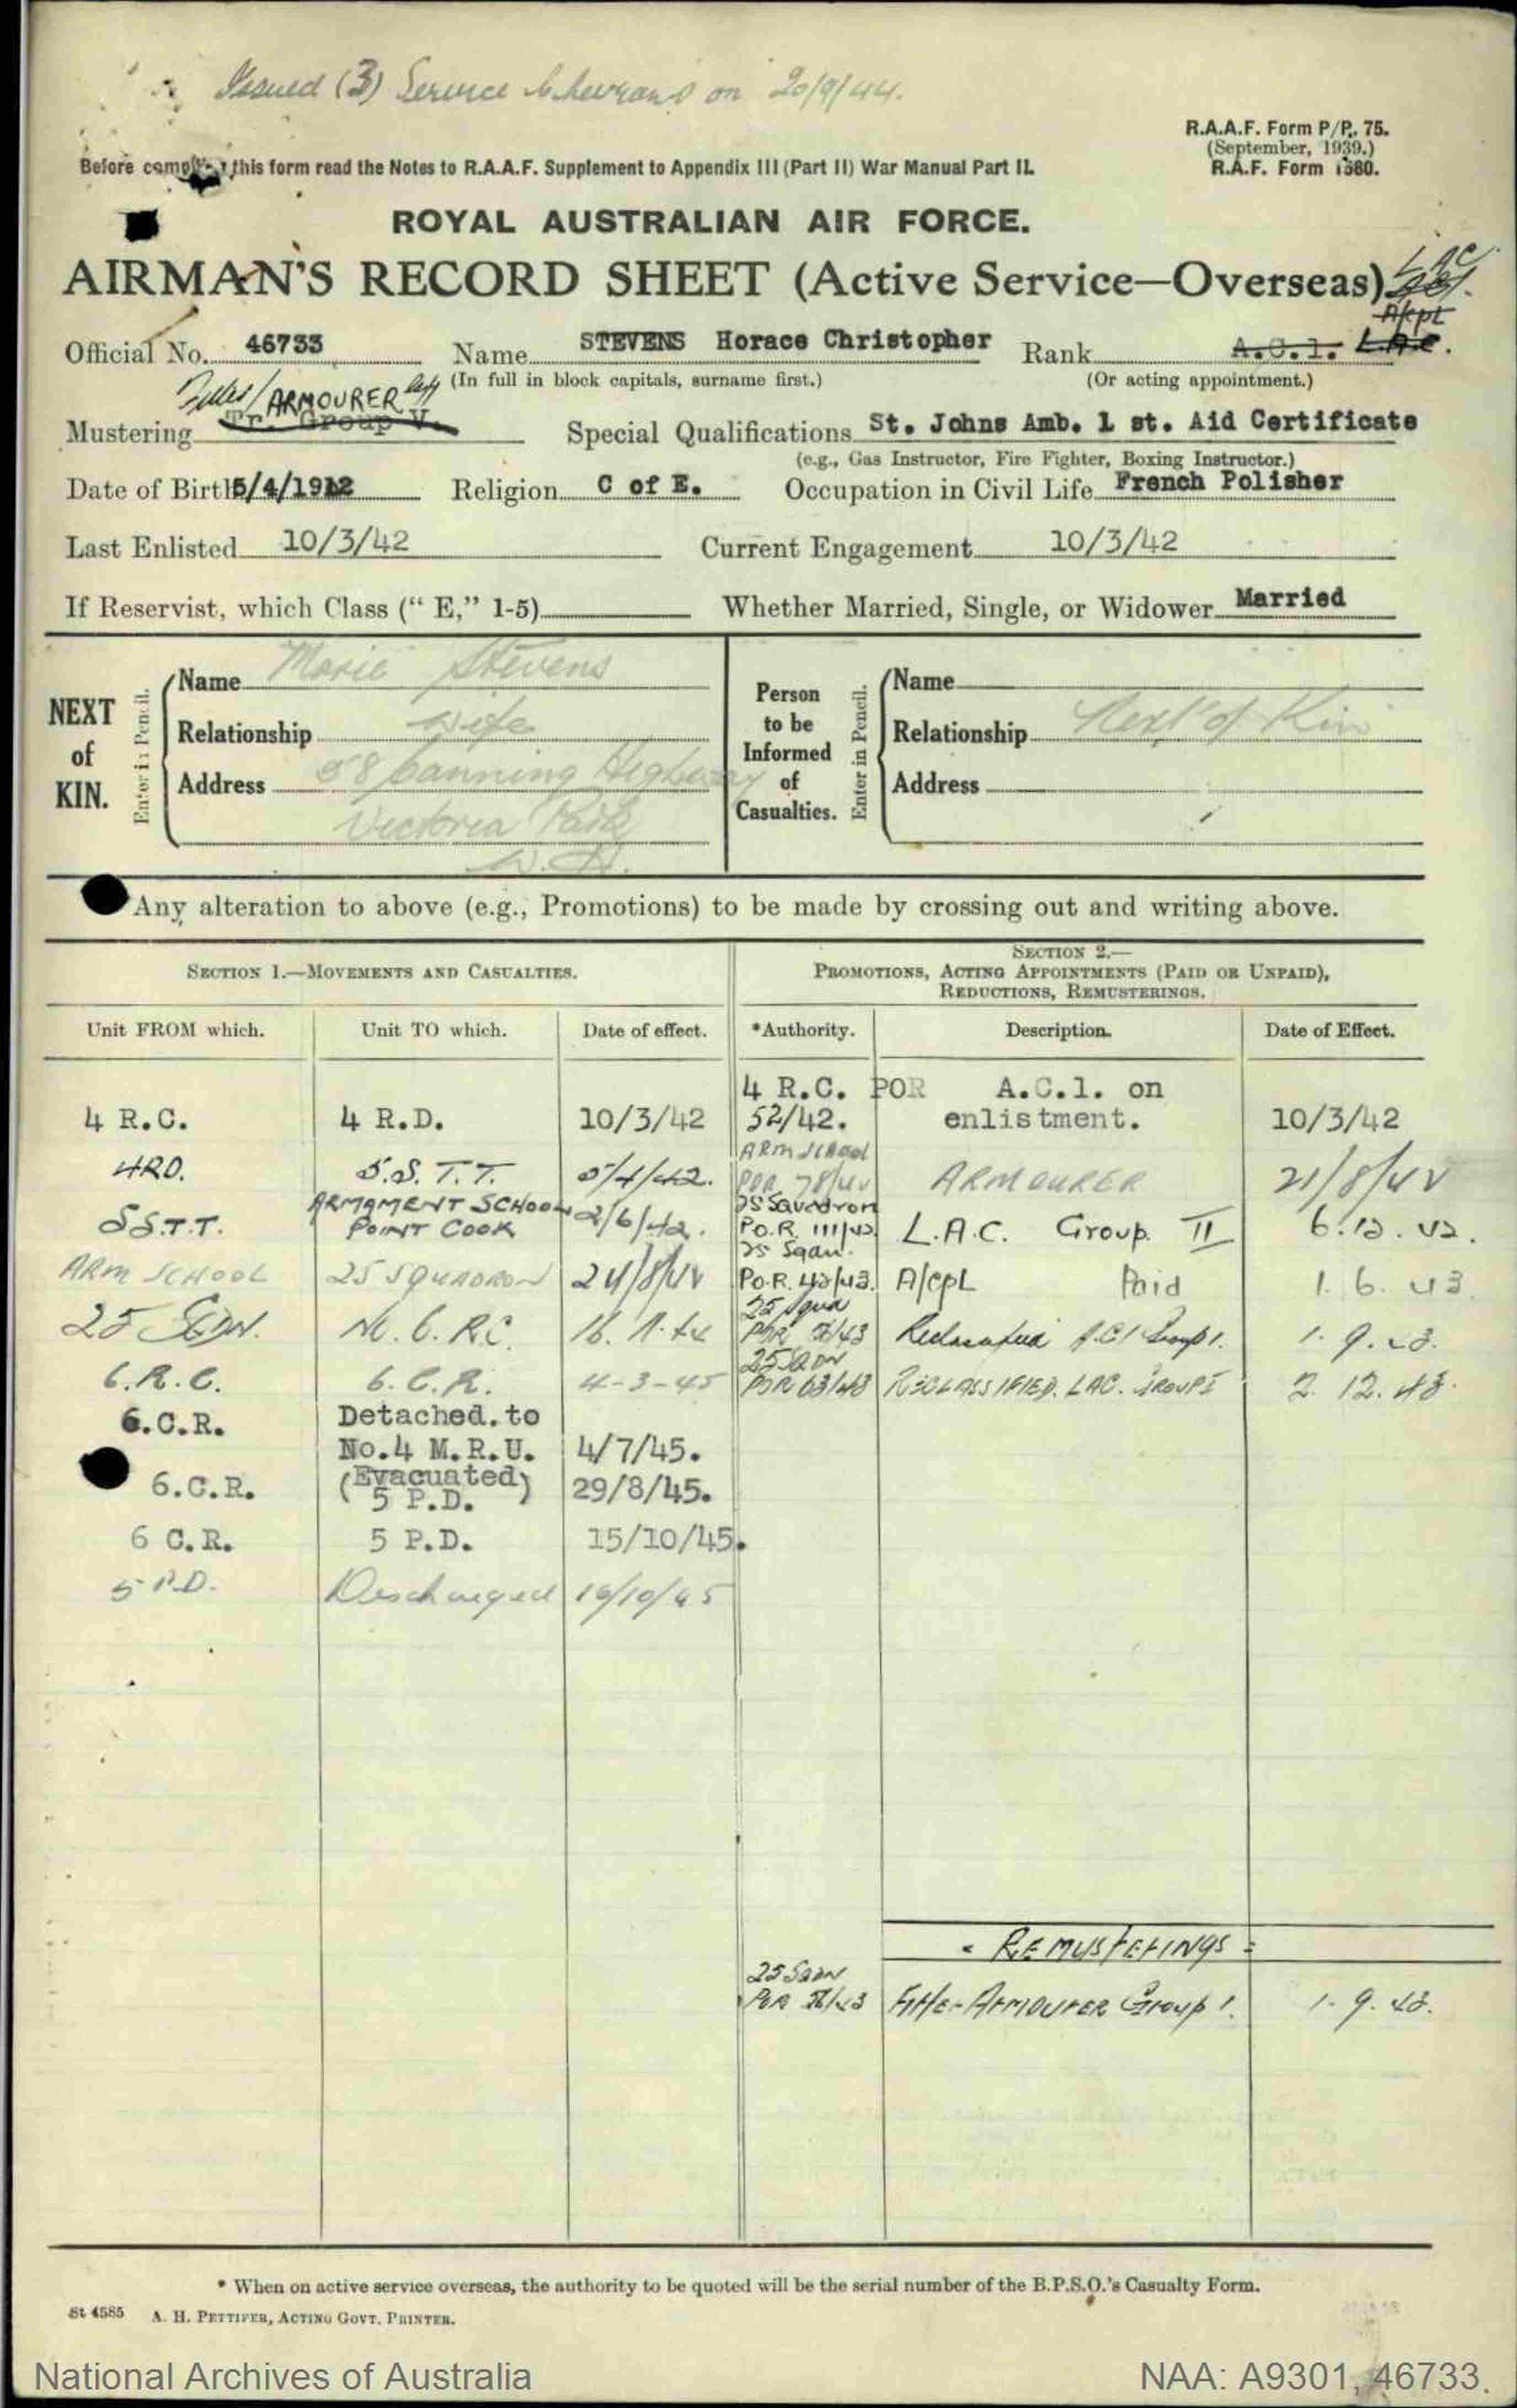 Issued (3) Service Chevrons on 20/9/44.
R.A.A.F. Form P/P. 75.
(September, 1939.)
R.A.F. Form 1580.
Before this form read the Notes to R.A.A.F. Supplement to Appendix III (Part II) War Manual Part II.
ROYAL AUSTRALIAN AIR FORCE.
AIRMAN'S RECORD SHEET (Active Service—Overseas)
LAC
A/cpl
Official No. 46733 Name STEVENS Horace Christopher Rank A.C.1. L.A.C.
(In full in block capitals, surname first.) (Or acting appointment.)
ARMOURER
Mustering Tr. Group V. Special Qualifications St. Johns Amb. 1 st. Aid Certificate
(e.g., Gas Instructor, Fire Fighter, Boxing Instructor.)
Date of Birth 5/4/1912 Religion C of E. Occupation in Civil Life French Polisher
Last Enlisted 10/3/42 Current Engagement 10/3/42
If Reservist, which Class (" E," 1-5) Whether Married, Single, or Widower Married
NEXT of KIN.
Enter in Pencil.
Name Marie Stevens
Relationship wife
Address 58 Canning Highway
Victoria Park
W.A.
Person to be Informed of Casualties.
Enter in Pencil.
Name
Relationship Next of Kin
Address
Any alteration to above (e.g., Promotions) to be made by crossing out and writing above.
SECTION 1.—MOVEMENTS AND CASUALTIES.
SECTION 2.—
PROMOTIONS, ACTING APPOINTMENTS (PAID OR UNPAID),
REDUCTIONS, REMUSTERINGS.
Unit FROM which. Unit TO which. Date of effect. *Authority. Description. Date of Effect.
4 R.C. POR A.C.1. on
4 R.C. 4 R.D. 10/3/42 52/42. enlistment. 10/3/42
ARM SCHOOL
4RD. S.S.T.T. 5/4/42. POR 78/42 ARMOURER 21/8/42
ARMAMENT SCHOOL 25 Squadron
S.S.T.T. POINT COOK 2/6/42. P.O.R. 111/42 L.A.C. Group II 6.12.42.
25 Sqdn.
ARM SCHOOL 25 SQUADRON 24/8/42 P.O.R. 42/43. A/CPL Paid 1.6.43.
25 Sqdn
25 SQDN. No. 6. R.C. 16.1. POR /43 Reclassified A.C.1 Group 1. 1.9.43.
25 SQDN
6.R.C. 6.C.R. 4-3-45 POR 63/43 RECLASSIFIED. LAC. GROUP I 2.12.43.
6.C.R. Detached. to
No.4 M.R.U. 4/7/45.
6.C.R. (Evacuated) 29/8/45.
5 P.D.
6 C.R. 5 P.D. 15/10/45.
5 P.D. Discharged 16/10/45
- REMUSTERINGS -
25 SQDN
POR /43 Fitter-ARMOURER Group 1. 1.9.43.
* When on active service overseas, the authority to be quoted will be the serial number of the B.P.S.O.'s Casualty Form.
St 4585 A. H. PETTIFER, ACTING GOVT. PRINTER.
National Archives of Australia
NAA: A9301, 46733.